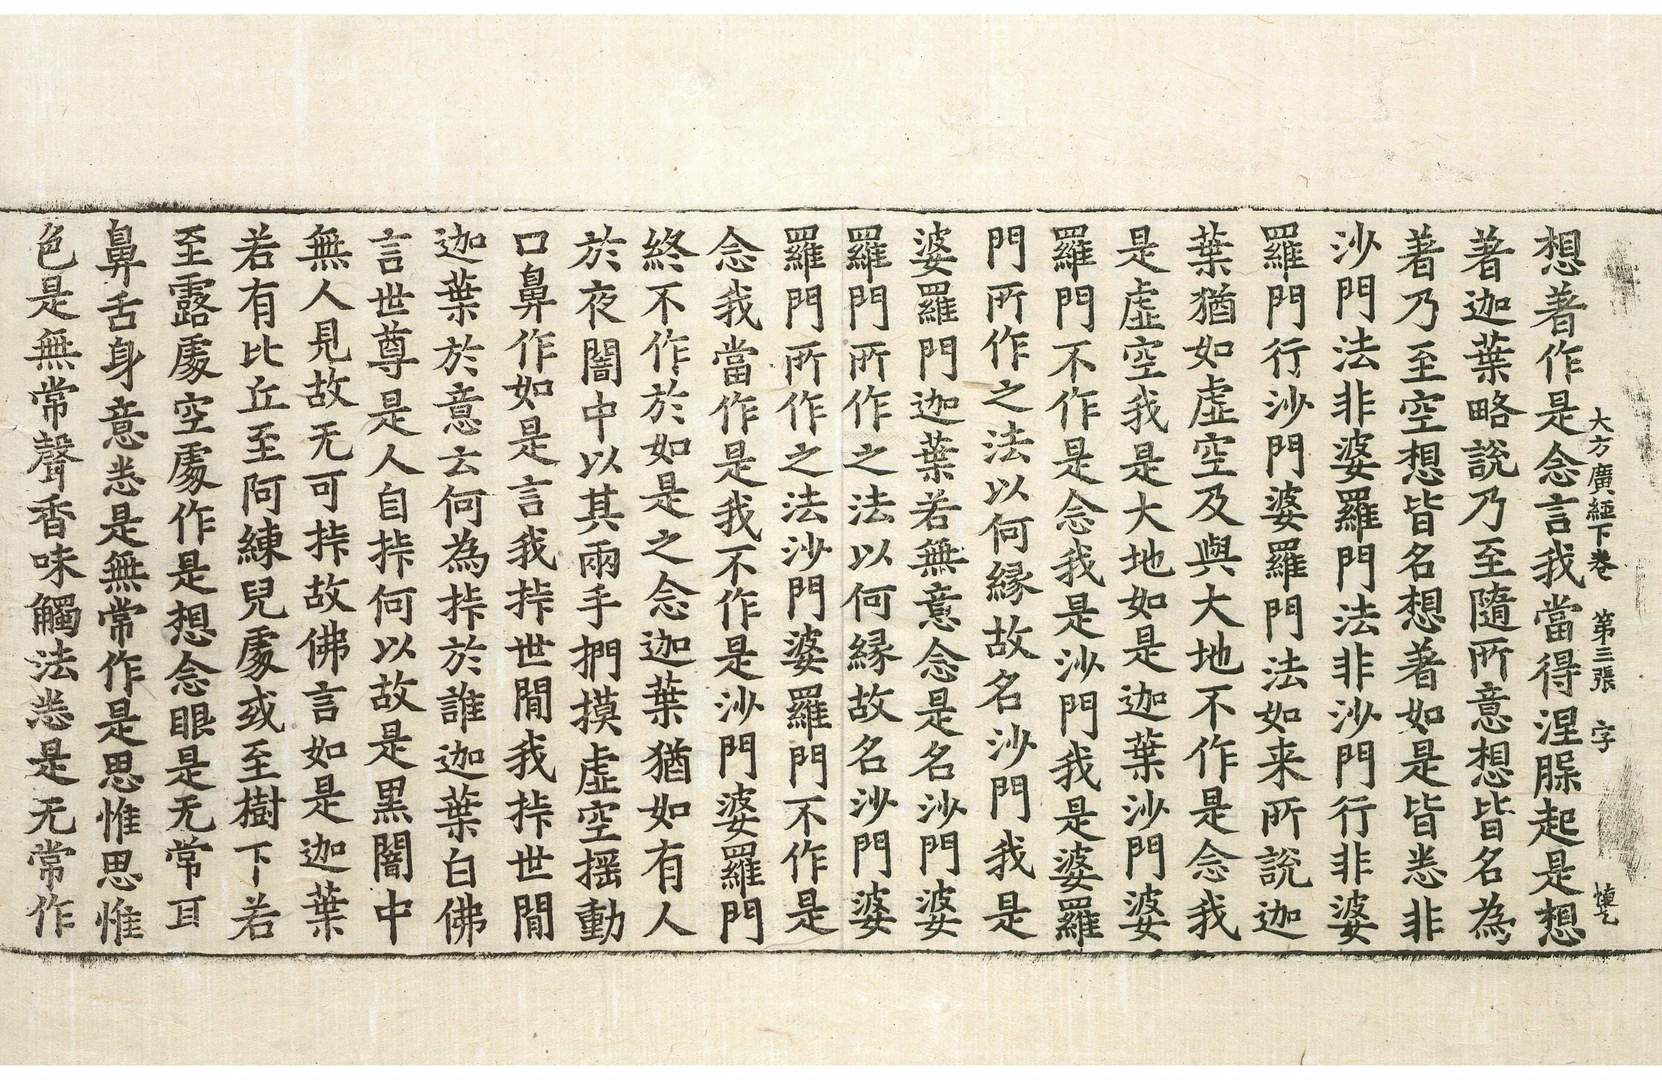 大方廣經下卷　第三張　字
想著作是念言我當得涅槃起是想
著迦葉略說乃至隨所意想皆名為
著乃至空想皆名想著如是皆悉非
沙門法非婆羅門法非沙門行非婆
羅門行沙門婆羅門法如来所說迦
葉猶如虛空及與大地不作是念我
是虛空我是大地如是迦葉沙門婆
羅門不作是念我是沙門我是婆羅
門所作之法以何緣故名沙門我是
婆羅門迦葉若無意念是名沙門婆
羅門所作之法以何緣故名沙門婆
羅門所作之法沙門婆羅門不作是
念我當作是我不作是沙門婆羅門
終不作於如是之念迦葉猶如有人
於夜闇中以其兩手捫摸虛空揺動
口鼻作如是言我挊世間我挊世間
迦葉於意云何為挊於誰迦葉白佛
言世尊是人自挊何以故是黑闇中
無人見故无可挊故佛言如是迦葉
若有比丘至阿練兒處或至樹下若
至露處空處作是想念眼是无常耳
鼻舌身意悉是無常作是思惟思惟
色是無常聲香味觸法悉是无常作